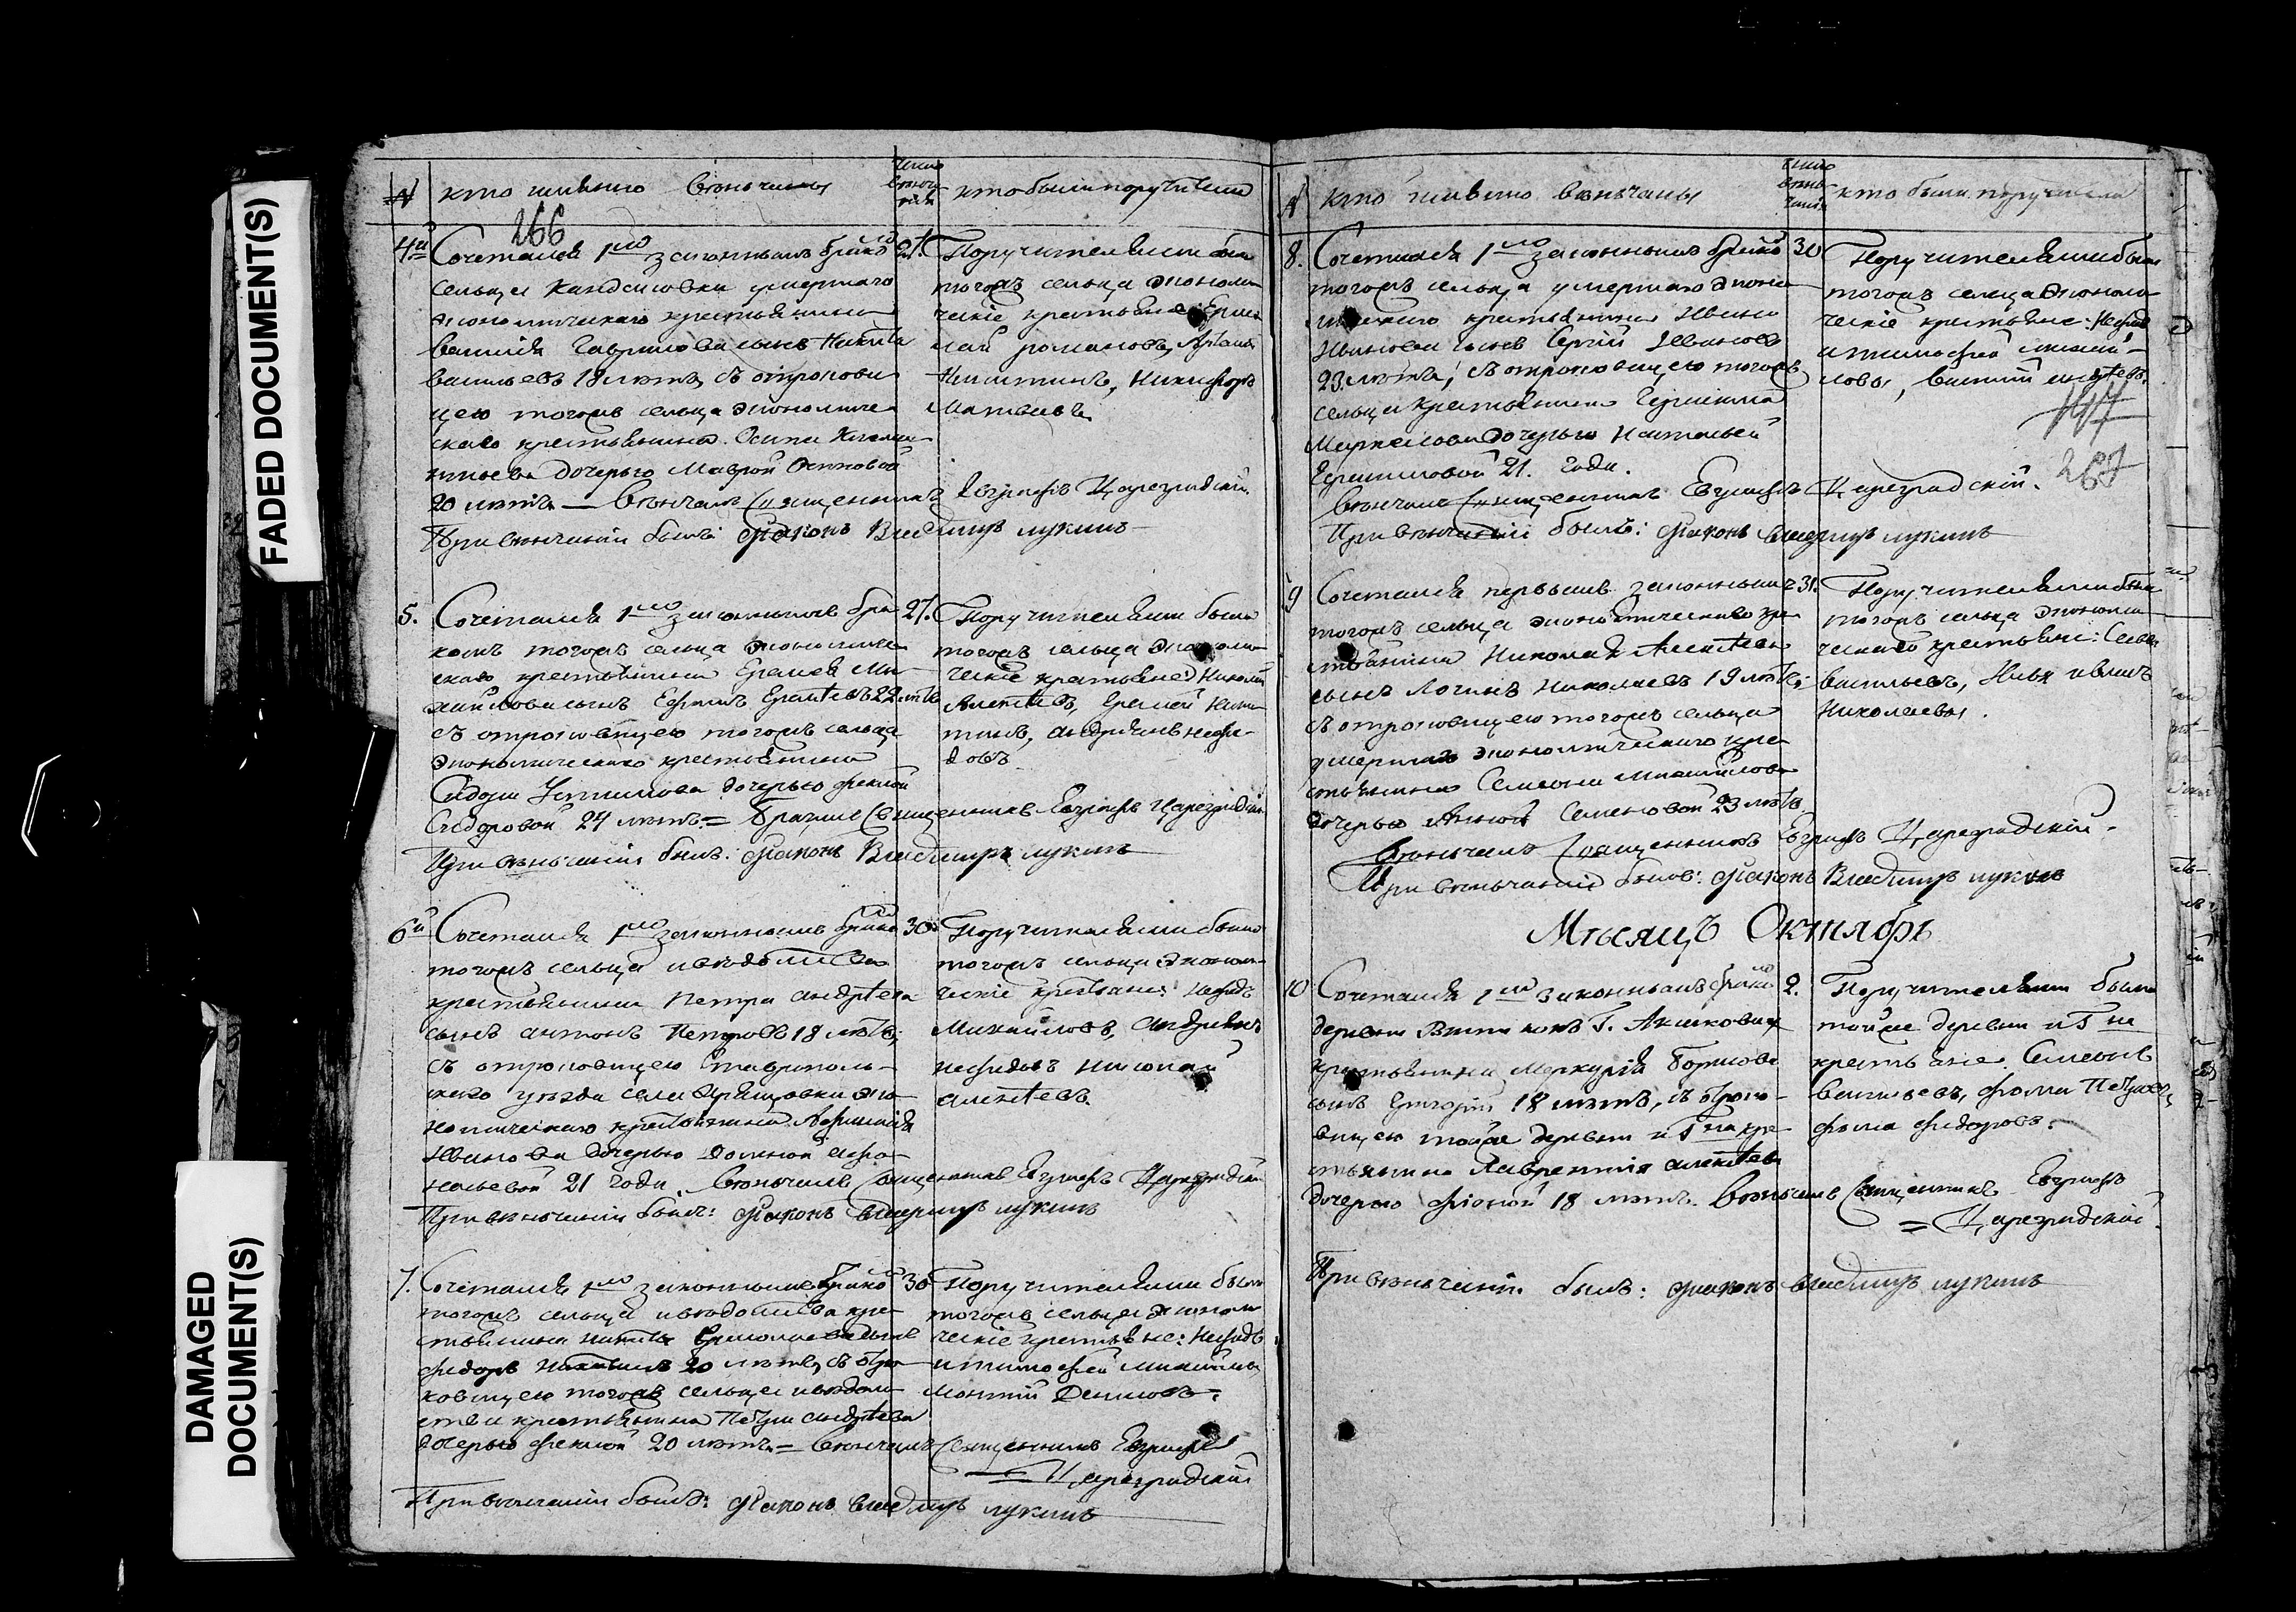 FADED DOCUMENT(S)
DAMAGED
DOCUMENT(S)
№ кто именно венчаны
число венчанія
кто были поручители
266
4й Сочетался 1мъ законнымъ бракомъ
сельца умершаго
экономическаго крестьянина
Василія Гаврилова сынъ Никита
Васильевъ 18 лѣтъ, съ отрокови
цею тогожъ сельца экономиче
скаго крестьянина Осипа
дочерью Маврой Осиповой
20 лѣтъ — Венчалъ Священникъ Евграфъ Цареградскій
При венчаніи былъ: Діаконъ Владимиръ Лукинъ
27.
Поручителями были
тогожъ сельца экономи
ческіе крестьяне: Ермо
лай Романовъ,
Никитинъ, Никифоръ
Матвеевъ
5. Сочетался 1мъ законнымъ бра
комъ тогожъ сельца экономиче
скаго крестьянина Еремея Ми
хайлова сынъ Ефимъ Еремѣевъ 22 лѣтъ
съ отроковицею тогожъ сельца
экономическаго крестьянина
Сидора дочерью Феклой
Сидоровой 24 лѣтъ = Священникъ Евграфъ Цареградскій
При венчаніи былъ: Діаконъ Владимиръ Лукинъ
27.
Поручителями были
тогожъ сельца экономи
ческіе крестьяне: Николай
Алексѣевъ, Еремей Ники
тинъ, Андреянъ Нефе
довъ
6й Сочетался 1мъ законнымъ бракомъ
тогожъ сельца и вѣдомства
крестьянина Петра Андрѣева
сынъ Антонъ Петровъ 18 лѣтъ;
съ отроковицею Ставрополь
скаго уезда села эко
номическаго крестьянина Афанасія
Иванова дочерью Афа
насьевой 21 года. Венчалъ Священникъ Евграфъ Цареградскій
При венчаніи былъ: Діаконъ Владимиръ Лукинъ
30.
Поручителями были
тогожъ сельца экономи
ческіе крестьяне: Нефедъ
Михайловъ, Андреянъ
Нефедовъ Николай
Алексѣевъ.
7. Сочетался 1мъ законнымъ бракомъ
тогожъ сельца и вѣдомства кре
стьянина Никиты Ермолаева сынъ
Федоръ Никитинъ 20 лѣтъ, съ отро
ковицею тогожъ сельца и вѣдом
ства крестьянина Петра Андрѣева
дочерью Феклой 20 лѣтъ = Венчалъ Священникъ Евграфъ
= Цареградскій
При венчаніи былъ: Діаконъ Владимиръ Лукинъ
30
Поручителями были
тогожъ сельца экономи
ческіе крестьяне: Нефедъ
и Тимофей Михайловы
Денисовъ.
№ кто именно венчаны
число венчанія
кто были поручители
8. Сочетался 1мъ законнымъ бракомъ
тогожъ сельца умершаго эконо
мическаго крестьянина Ивана
Иванова сынъ Сергій Ивановъ
23 лѣтъ; съ отроковицею тогожъ
сельца крестьянина Герасима
Маркелова дочерью Натальей
Герасимовой 21. года.
Венчалъ Священникъ Евграфъ Цареградскій.
При венчаніи былъ: Діаконъ Владимиръ Лукинъ
30
Поручителями были
тогожъ сельца экономи
ческіе крестьяне: Нефедъ
и Тимофей Михай
ловы, Василий
267
9 Сочетался первымъ законнымъ
тогожъ сельца экономическаго кре
стьянина Николая Алексѣева
сынъ Логинъ Николаевъ 19 лѣтъ;
съ отроковицею тогожъ сельца
умершаго экономическаго кре
стьянина Семеона Михайлова
дочерью Анной Семеновой 23 лѣтъ.
Венчалъ Священникъ Евграфъ Цареградскій.
При венчаніи былъ: Діаконъ Владимиръ Лукинъ
31.
Поручителями были
тогожъ сельца экономи
ческаго крестьяне:
Васильевъ, Илья
Николаевы.
Мѣсяцъ Октябрь
10 Сочетался 1мъ законнымъ бракомъ
деревни Г.
крестьянина Меркурія Борисова
сынъ Григорій 18 лѣтъ, съ отроко
вицею тойже деревни и Гна кре
стьянина Лаврентія Алексѣева
дочерью 18 лѣтъ. Венчалъ Священникъ Евграфъ
= Цареградскій.
При венчаніи былъ: Діаконъ Владимиръ Лукинъ
2.
Поручителями были
тойже деревни и Г на
крестьяне: Семеонъ
Васильевъ, Фома Петровъ,
Фома Федоровъ.